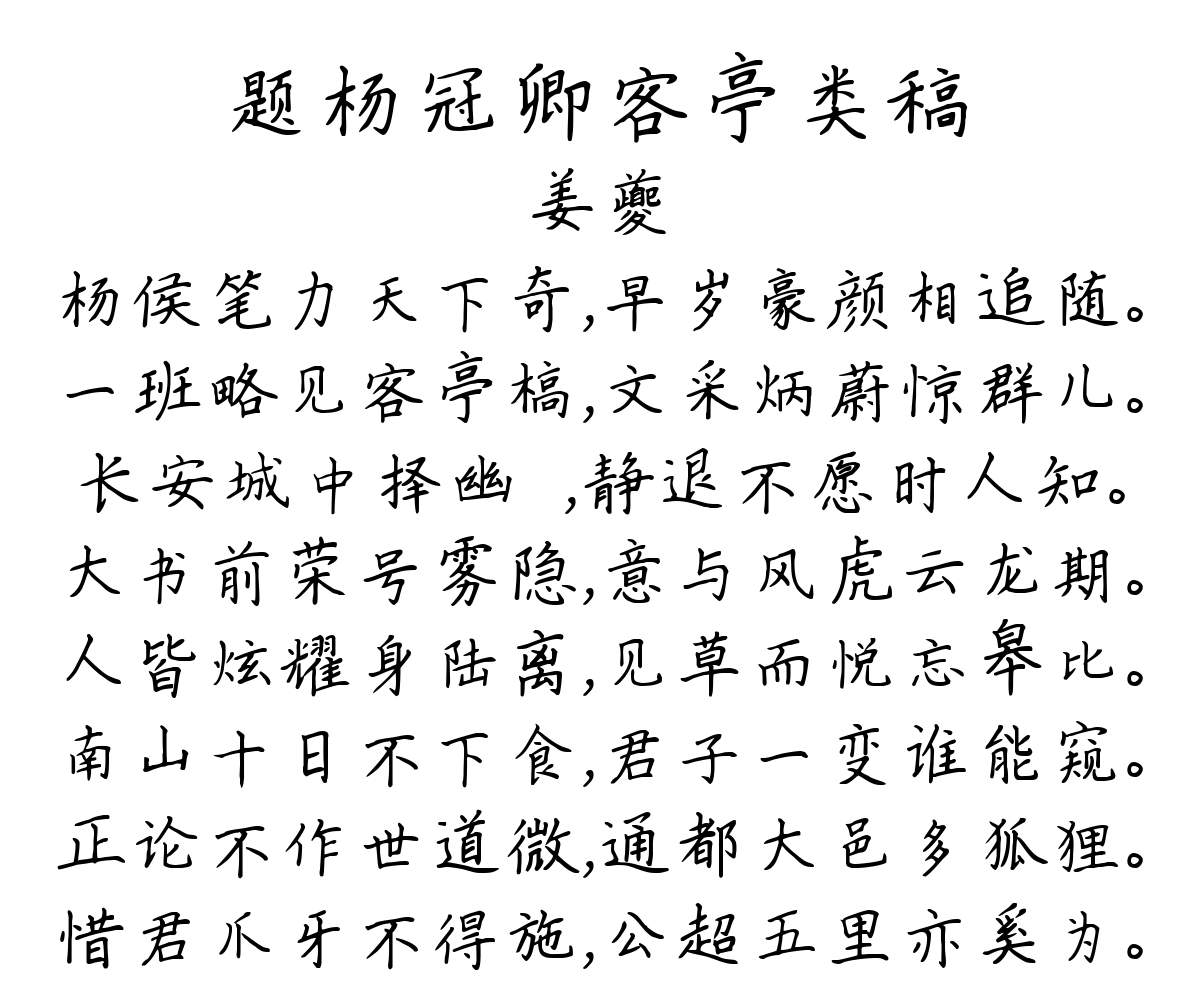 题杨冠卿客亭类稿
姜夔
杨侯笔力天下奇,早岁豪颜相追随。
一班略见客亭槁,文采炳蔚惊群儿。
长安城中择幽 ,静退不愿时人知。
大书前荣号雾隐,意与风虎云龙期。
人皆炫耀身陆离,见草而悦忘皋比。
南山十日不下食,君子一变谁能窥。
正论不作世道微,通都大邑多狐狸。
惜君爪牙不得施,公超五里亦奚为。